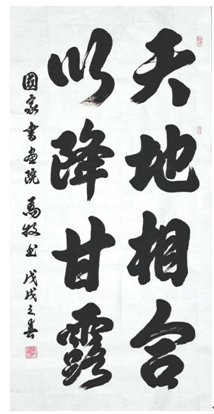 天地相合
以降甘露
國家書画院 馬牧书 戊戌之春